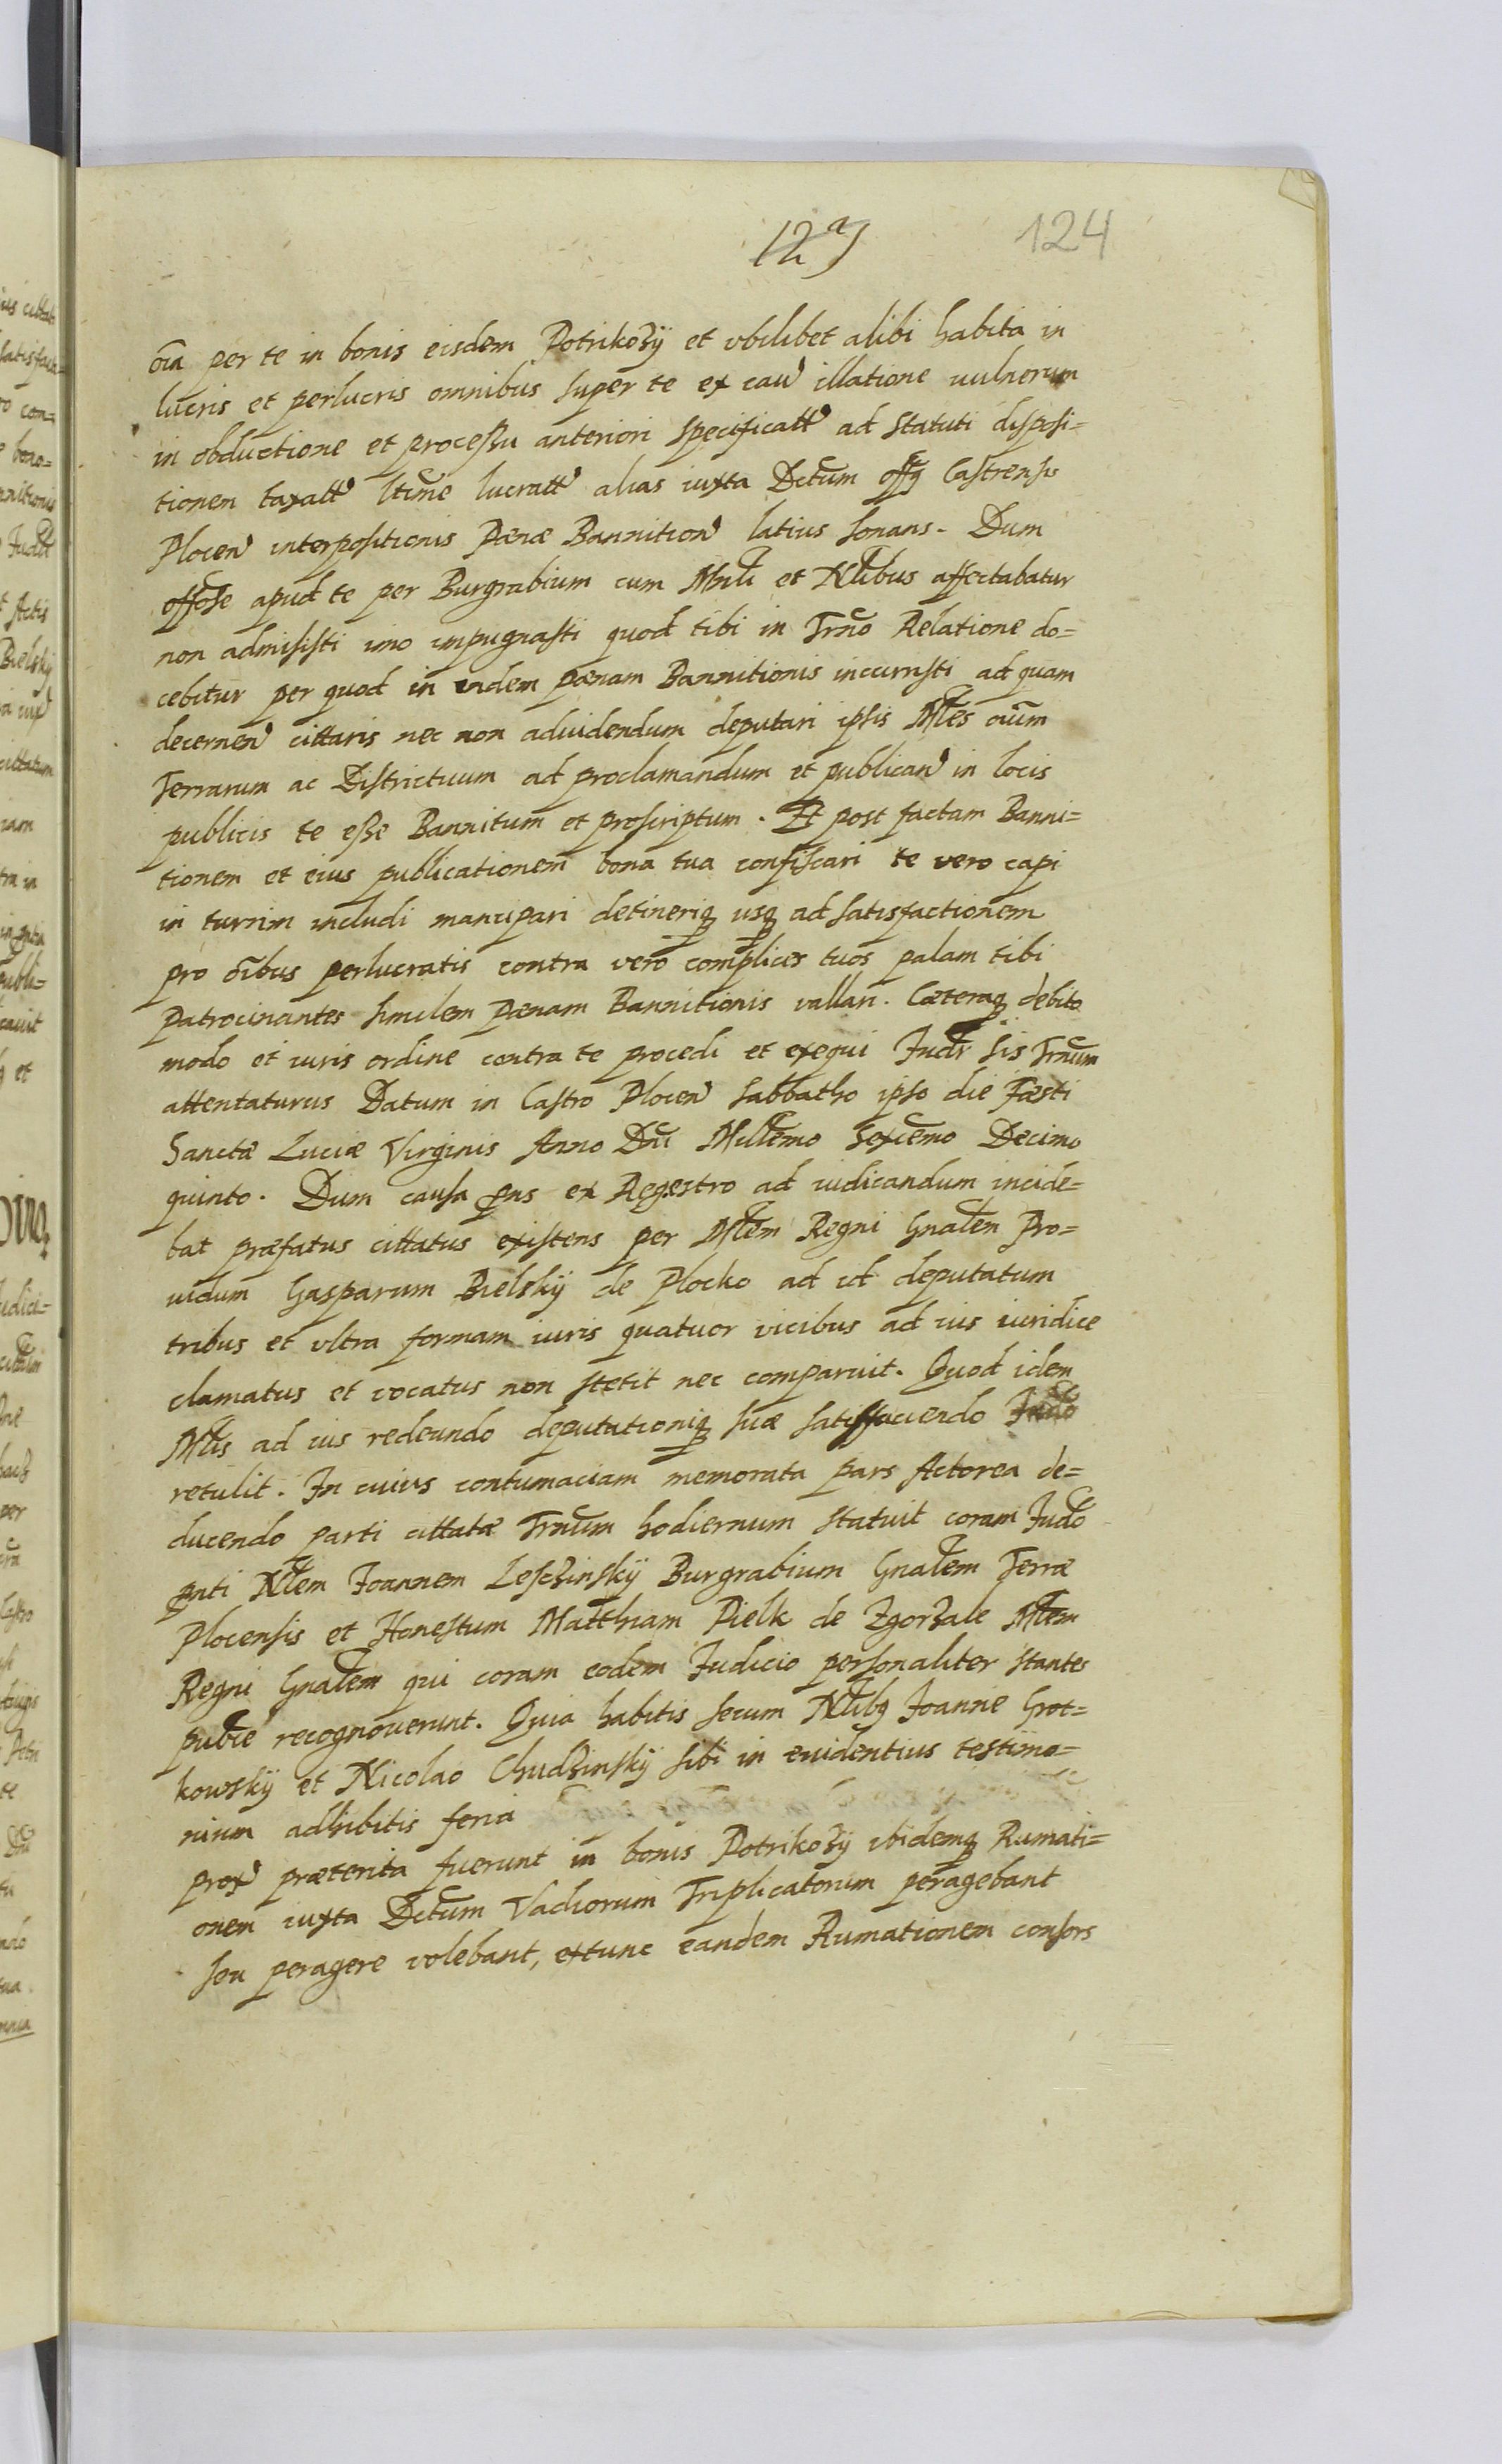 124
oīa per te in bonis eisdem Potrikozÿ et vbilibet alibi habita in
lucris et perlucris omnibus super te ex cau illatione vulnerum
in obductione et processu anteriori specificatt ad Statuti disposi=
tionem taxatt ltime lucratt alias iuxta Dctum offÿ Castrensis
Plocen interpositionis Pænæ Bannition latius sonans. Dum
offose apud te per Burgrabium cum Mrīli et Nlibus affectabatur
non admisisti imo impugnasti quod tibi in Trno Relatione do=
cebitur per quod in eadem pænam Bannitionis incurristi ad quam
decernen cittaris nec non adividendum deputari ipsis Mles oīum
Terrarum ac Districtuum ad proclamandum et publican in locis
publicis te esse Bannitum et proscriptum. Et post factam Banni=
tionem et eius publicationem bona tua confiscari te vero capi
in turrim includi mancipari detineriq usq ad satisfactionem
pro oībus perlucratis contra vero complices tuos palam tibi
patrocinantes similem pænam Bannitionis vallari. Cæteraq debito
modo et iuris ordine contra te procedi et exequi Judr sis Trnum
attentaturus Datum in Castro Plocen Sabbatho ipso die Fæsti
Sanctæ Luciæ Virginis Anno Dni Millemo Sexcemo Decimo
quinto. Dum causa pns ex Regestro ad iudicandum incide=
bat præfatus cittatus existens per Mlem Regni Gnalem Pro=
uidum Gasparum Bielskÿ de Plocko ad id deputatum
tribus et vltra formam iuris quatuor vicibus ad ius iuridice
clamatus et vocatus non stetit nec comparuit. Quod idem
Mlis ad ius redeundo deputationiq suæ satisfaciendo Judo
retulit. In cuius contumaciam memorata pars Actorea de=
ducendo parti cittatæ Trnum hodiernum statuit coram Judo
pnti Nlem Joannem Leschinskÿ Burgrabium Gnalem Terræ
Plocensis et Honestum Matthiam Pielk de Zgorzale Mlem
Regni Gnalem qui coram eodem Judicio personaliter stantes
publce recognouerunt. Quia habitis secum Nlibq Joanne Grot=
kowskÿ et Nicolao Chudzinskÿ sibi in euidentius testimo=
nium adhibitis feria
prox præterita fuerunt in bonis Potrikozÿ ibidemq Rumati=
onem iuxta Dctum Vadiorum Triplicatorum peragebant
seu peragere volebant, extunc eandem Rumationem consors